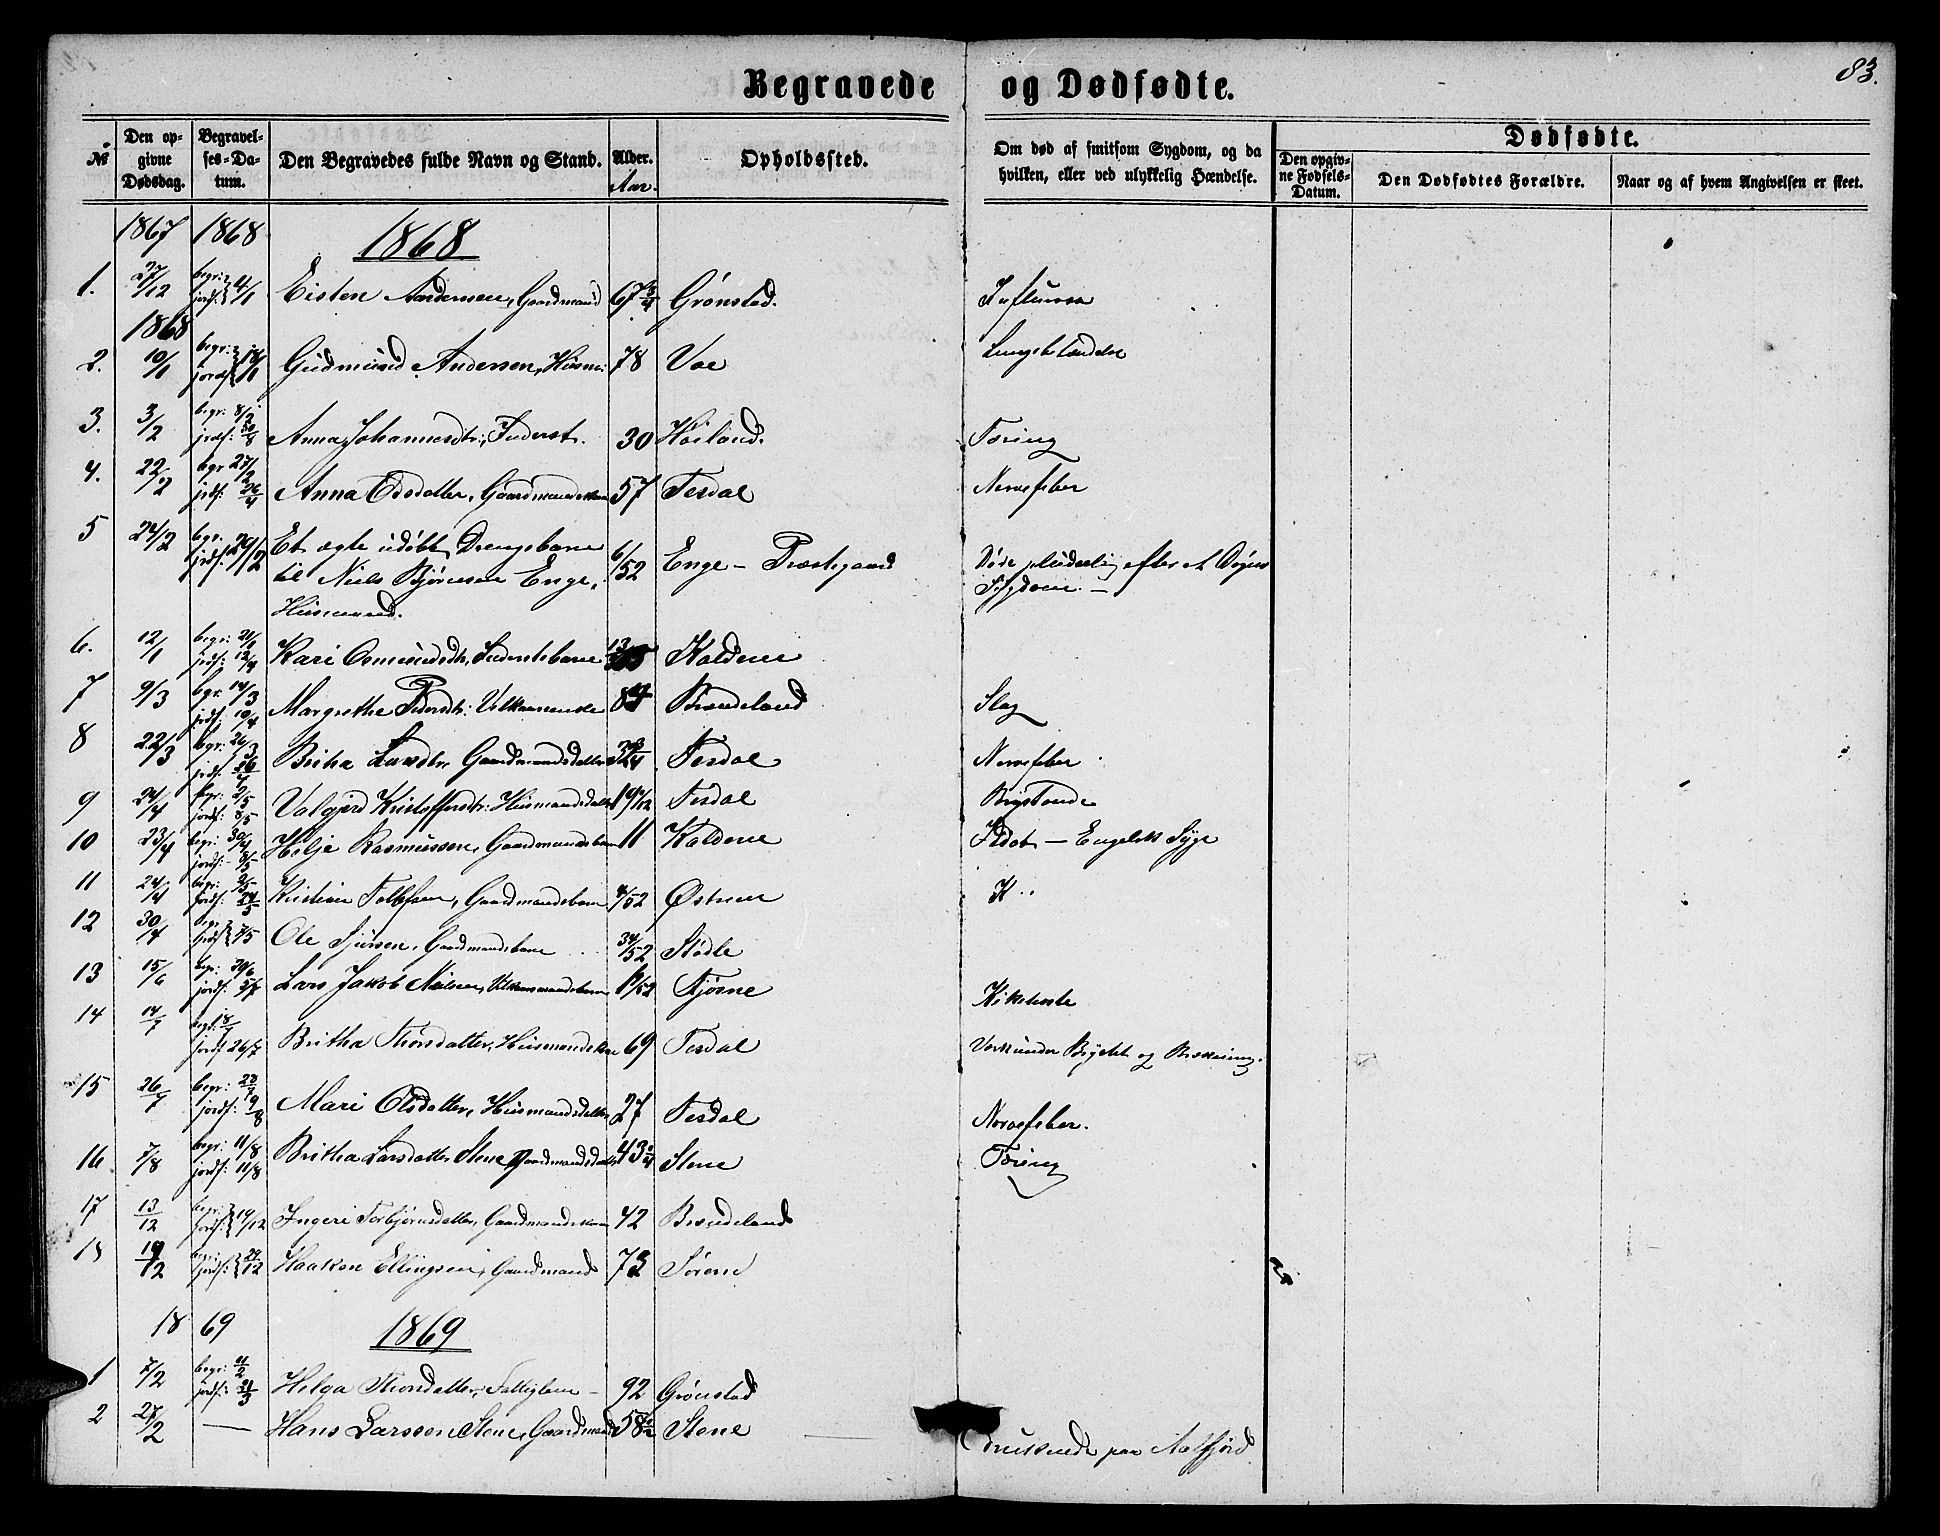 83.
Begravede og Dødfødte.
№ Den opgivne Dødsdag. Begravelses-Datum. Den Begravedes fulde Navn og Stand. Alder. Aar. Opholdssted. Om død af smitsom Sygdom, og da hvilken, eller ved ulykkelig Hændelse. Dødfødte. Den opgivne Fødsels-Datum. Den Dødfødtes Forældre. Naar og af hvem Angivelsen er skeet.
1867 1868 1868
1. 27/12 begr: jordf: 4/1 Eisten Andersen, Gaardmand 67 3/4 Grønstad.
1868
2. 10/1 begr: jordf: 18/1 Gudmund Andersen, Husm: 78 Vae
3. 3/2 begr: 8/2 jrdf: Anna Johannesdtr, Inderst. 30 Høiland. Tæring
4. 22/2 begr 27/2 jrdf: 26/4 Anna Odsdatter, Gaardmandskone 57 Tesdal Nervefeber
5 24/2 begr. jrdf: 29/2 Et ægte udøbt Drengebarn 6/52 Enge - Præstegaard Døde pludselig efter et Døgns
til Niels Bjørnsen Enge, Sygdom. -
Husmand.
6. 12/1 begr: jrdf: 12/4 Kari Osmundsdtr, Inderstsbarn Koldene
7 9/3 begr. 14/3 jrdf. 19/4 Margrethe Pedersdtr: 84 Brændeland Slag
8 22/3 begr. 26/3 jrdf. 26/4 Britha Larsdtr, Gaardmandsdatter Tesdal Nervefeber
9 24/4 begr: 2/5 jordf: 8/5 Valgjerd Kristoffersdtr: Husmandsdatter Tesdal
10 23/4 begr: 30/4 jordf: 8/5 Helje Rasmussen, Gaardmandsbarn 11 Koldene - Engelsk Syge
11 24/4 begr: 2/5 jordf: 24/5 Kristian Tollefsen, Gaardmandsbarn 4/52 Østrem K
12 30/4 begr: jrdf: 7/5 Ole Sjursen, Gaardmandsbarn 34/52 Stødle
13 15/6 begr. 20/6 jordf: 5/7 Lars Jakob Nilsen, Stjørne Kikhoste
14 14/7 begr: 18/7 jordf 26/7 Britha Thorsdatter, Husmandskone 69 Tesdal
15 26/7 begr: 28/7 jordf: 9/8 Mari Olsdatter, Husmandsdatter 27 Tesdal Nervefeber.
16 7/8 begr: 11/8 jordf: 11/8 Britha Larsdatter Stene Gaardmandsdatter 43 3/4 Stene Tæring
17 13/12 begr: jordf: 19/12 Ingeri Torbjørnsdatter, Gaardmandskone 42 Brændeland
18 19/12 begr: jordf: 24/12 Haakon Ellingsen, Gaardmand 73 Sørene
18 69 1869
1 7/2 begr: 11/2 jordf: 21/3 Helga Thorsdatter, Fattiglem - 92 Grønstad
2 27/2 — Hans Larssen Stene, Gaardmand 58 1/2 Stene Druknede paa Aalfjord